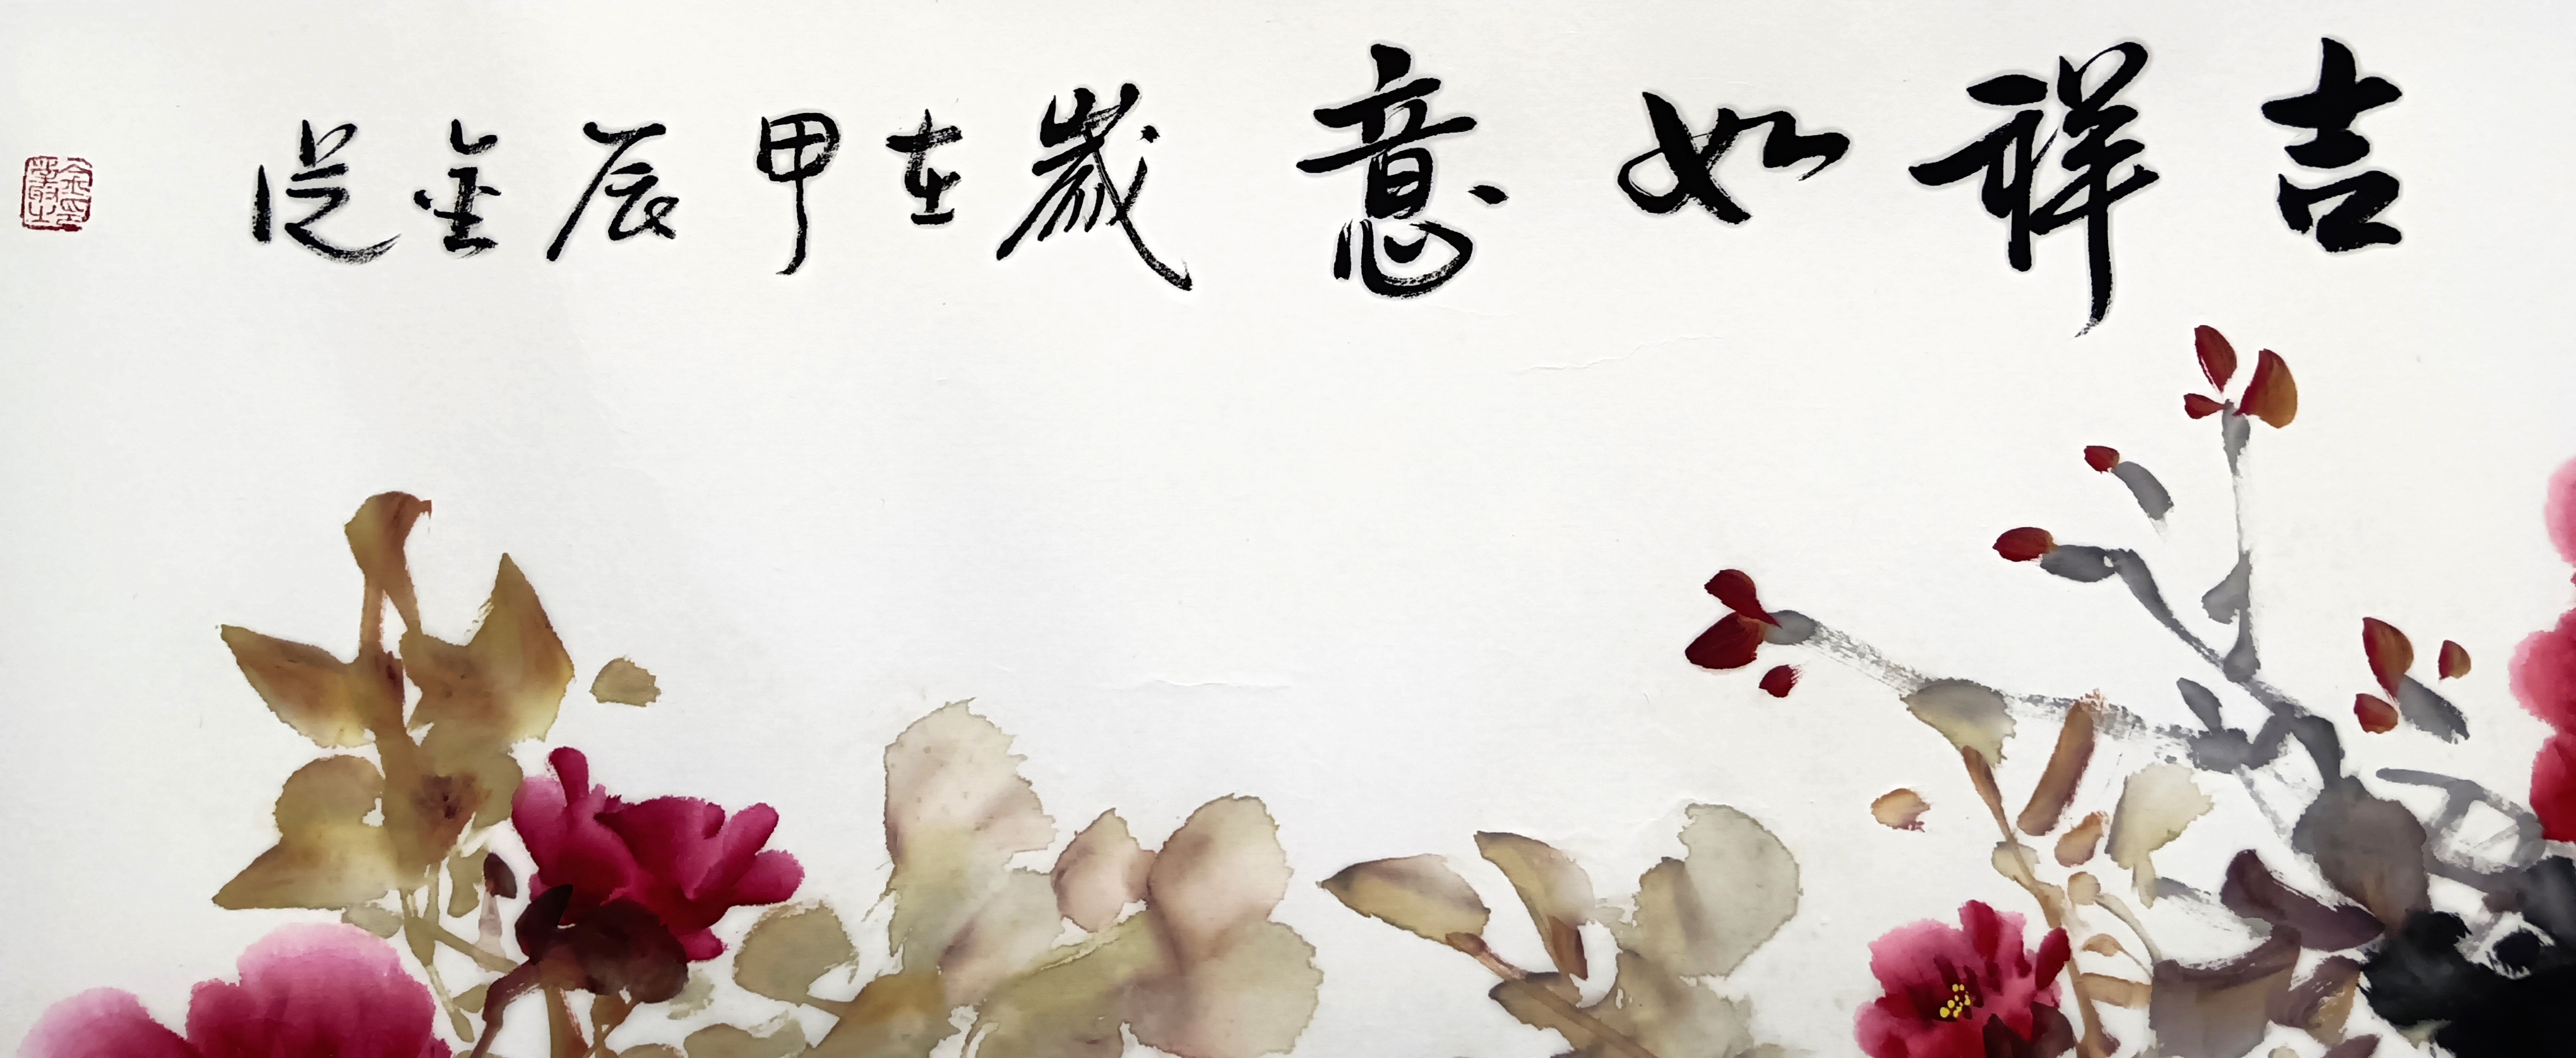 吉祥如意歲在甲辰金从